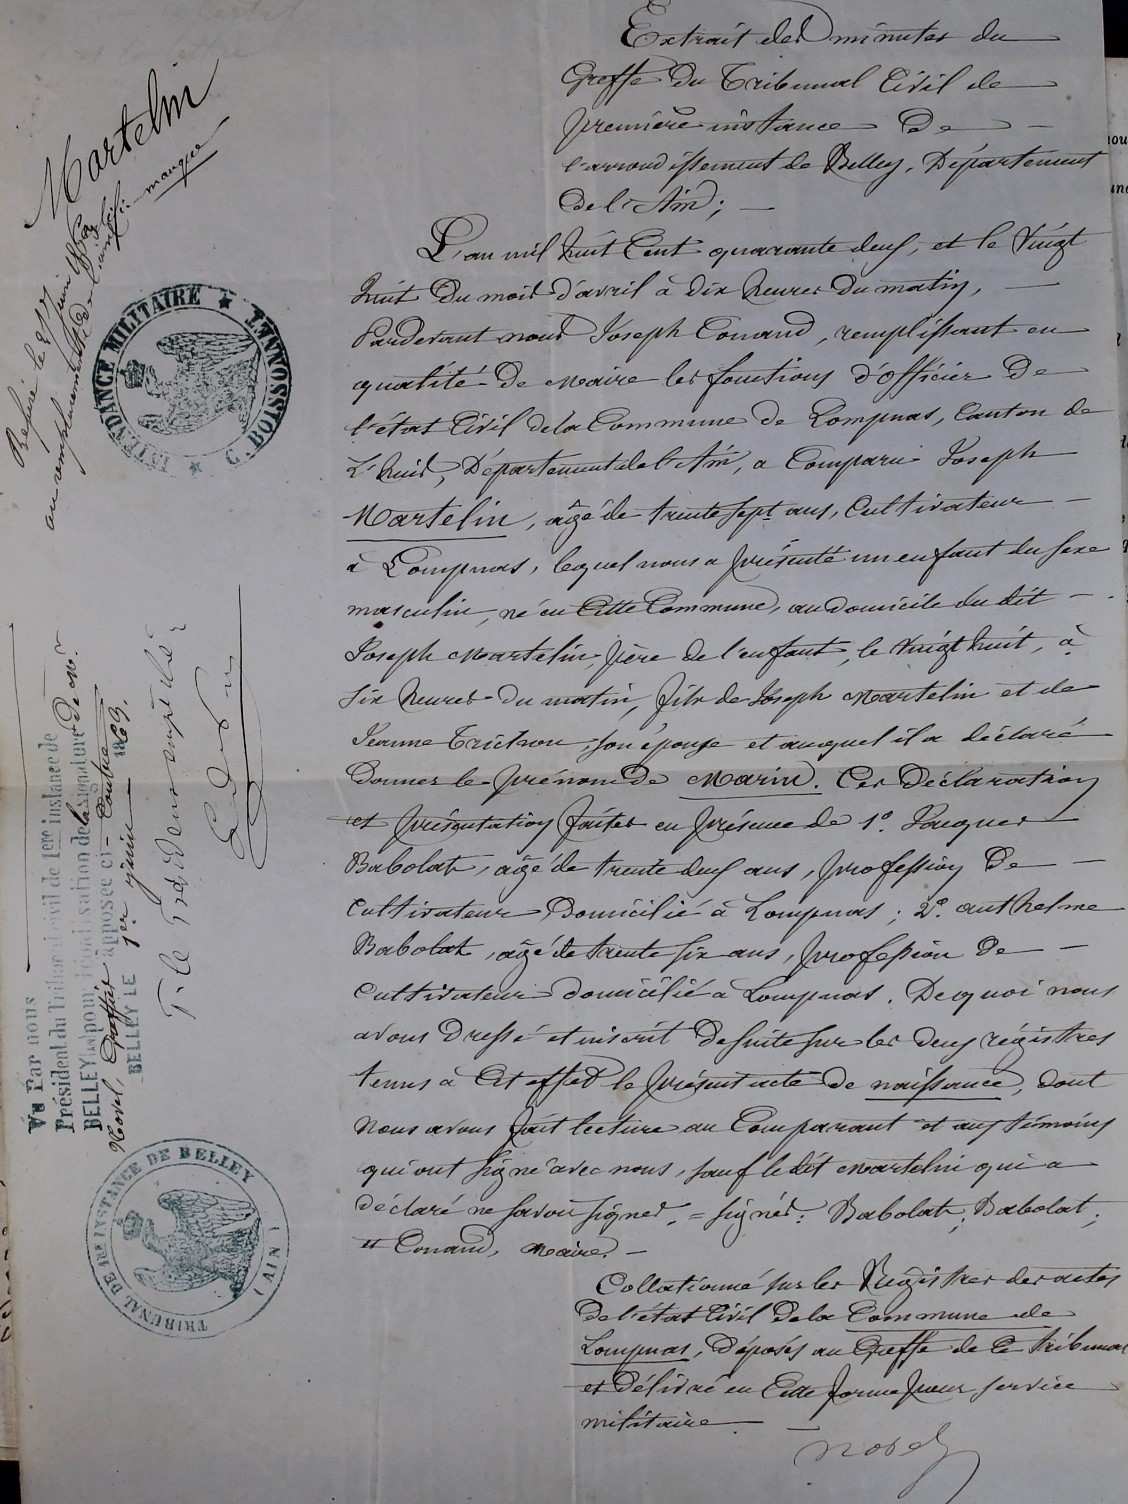 Extrait des minutes du
Greffe du Tribunal Civil de
première instance de
l'arrondissement de Belley, Département
de l'Ain ;
L'an mil huit cent quarante deux, et le vingt
huit du mois d'avril à dix heures du matin,
Pardevant nous Joseph Conand, remplissant en
qualité de maire les fonctions d'officier de
l'état Civil de la Commune de Lompnas, Canton de
L'huis, Département de l'Ain, a Comparu Joseph
Martelin, âgé de trente sept ans, Cultivateur
à Lompnas, lequel nous a présenté un enfant du sexe
masculin, né en Cette Commune, au domicile du dit
Joseph Martelin, père de l'enfant, le vingt huit, à
six heures du matin, fils de Joseph Martelin et de
Jeanne Trichon, son épouse et auquel il a déclaré
donner le prénom de Marin. Ces déclaration
et présentation faites en présence de 1º. Jacques
Babolat, âgé de trente deux ans, profession de
Cultivateur domicilié à Lompnas ; 2º. anthelme
Babolat, âgé de trente six ans, profession de
Cultivateur domicilié à Lompnas. De quoi nous
avons dressé et inscrit de suite sur les deux régistres
tenus à Cet effet le présent acte de naissance, dont
nous avons fait lecture au Comparant et aux témoins
qui ont signé avec nous, sauf le dit Martelin qui a
déclaré ne savoir signer. = signés : Babolat ; Babolat ;
Conand, maire.
Collationné sur les Régistres des actes
de l'état Civil de la Commune de
Lompnas, déposés au Greffe de Ce tribunal
et délivré en Cette forme pour service
militaire.
Morel
Martelin
au remplacement de
manqué
INTENDANCE MILITAIRE
G. BOISSONNET
Vu Par nous
Président du Tribunal civil de 1ère instance de
BELLEY (Ain) pour légalisation de la signature de Mr.
Morel, Greffier apposée ci-contre
BELLEY LE 1er juin 1869.
P. le Président empêché
TRIBUNAL DE 1RE INSTANCE DE BELLEY
( AIN )